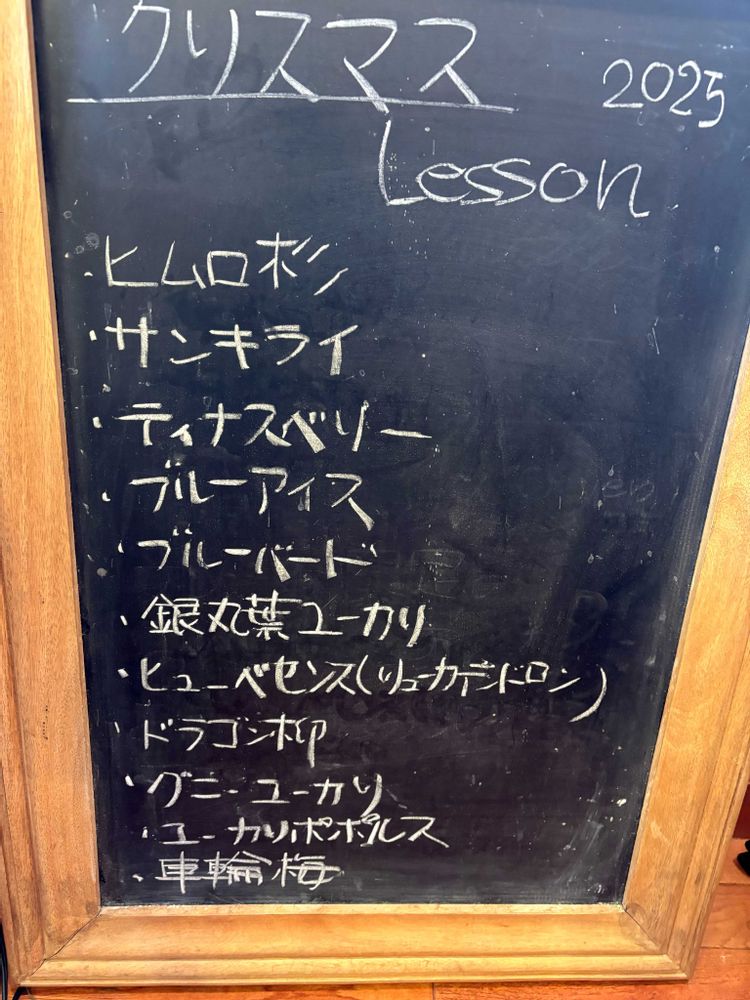 クリスマス
2025
Lesson
・ヒムロ杉
・サンキライ
・ティナスベリー
・ブルーアイス
・ブルーバード
・銀丸葉ユーカリ
・ヒューベセンス(リューカデンドロン)
・ドラゴン柳
・グニーユーカリ
・ユーカリポポルス
・車輪梅